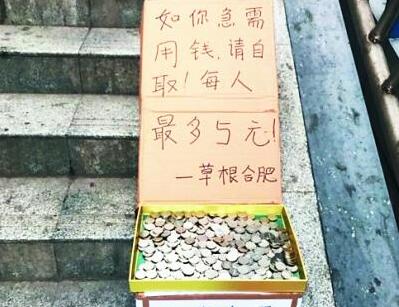 如你急需
用钱,请自
取!每人
最多5元!
—草根合肥